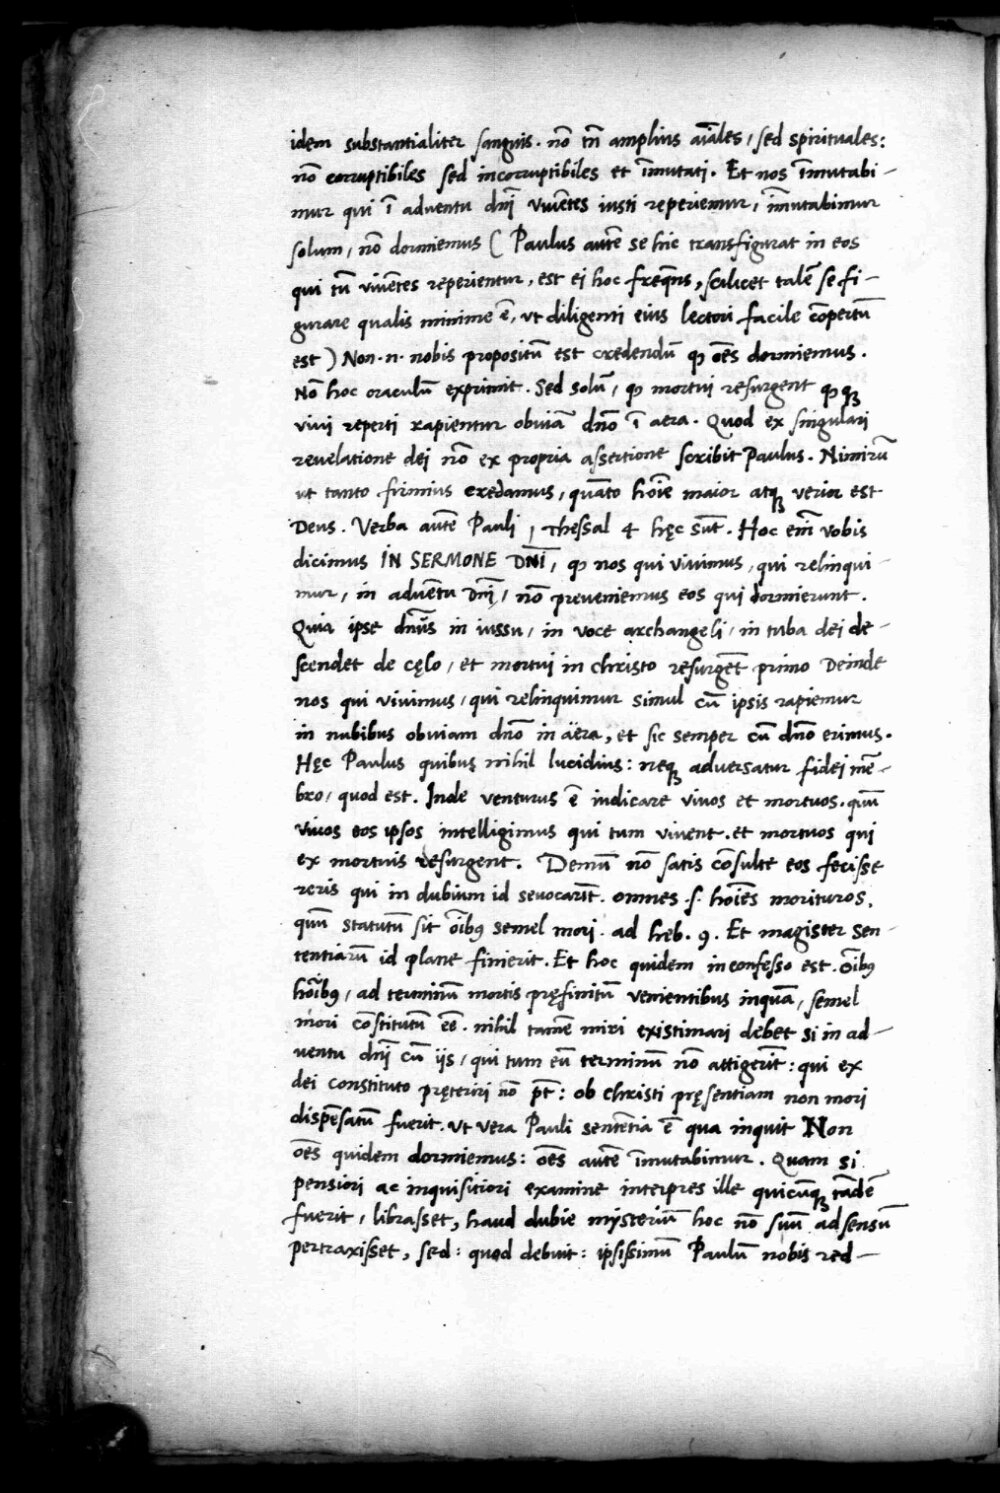 idem substantialiter sanguis. nō tn̄ amplius aīales, sed spirituales:
nō corruptibiles sed incorruptibiles et īmutati. Et nos īmutabi-
mur qui ī aduentu dnī viuētes iusti reperiemur, īmutabimur
solum, nō dormiemus ( Paulus autē se hic transfigurat in eos
qui tū viuētes reperientur, est ej hoc freqn̄s, scilicet talē se fi-
gurare qualis minime ē, vt diligenti eius lectori facile cōpertū
est ) Non .n. nobis propositū est credendū ꝙ oēs dormiemus.
Nō hoc oraculū exprimit. Sed solū, ꝙ mortui resurgent ꝙqꝫ
viui reperti rapientur obuiā dnō ī aera. Quod ex singulari
reuelatione dei nō ex propria assertione scribit Paulus. Nimirū
ut tanto firmius credamus, quāto hoīe maior atqꝫ verior est
Deus. Verba autē Pauli 1 Thessal 4 hęc sūt. Hoc em̄ vobis
dicimus IN SERMONE DN̄I, ꝙ nos qui viuimus, qui relinqui-
mur, in aduētu Dnī, nō preueniemus eos qui dormierunt.
Quia ipse dn̄us in iussu, in voce archangeli, in tuba dei de-
scendet de cęlo, et mortui in christo resurgēt primo Deinde
nos qui viuimus, qui relinquimur simul cū ipsis rapiemur
in nubibus obuiam dnō in äera, et sic semper cū dnō erimus.
Hęc Paulus quibus nihil lucidius: neqꝫ aduersatur fidei mē-
bro, quod est. Inde venturus ē iudicare viuos et mortuos. quū
viuos eos ipsos intelligimus qui tum viuent. et mortuos qui
ex mortuis resurgent. Demū nō satis cōsulte eos fecisse
reris qui in dubium id seuocarīt. omnes .s. hoīes morituros,
quū statutū sit oībꝯ semel mori. ad heb. 9. Et magister sen-
tentiarū id plane finierit. Et hoc quidem in confesso est. Oībꝯ
hoībꝯ, ad terminū mortis pręfinitū venientibus inquā, semel
mori cōstitutū eē. nihil tamē miri existimari debet si in ad-
uentu dnī cū iis, qui tum eū terminū nō attigerīt: qui ex
dei constituto pręteriri nō pt̄: ob christi pręsentiam non mori
dispēsatū fuerit. vt vera Pauli sentētia ē qua inquit Non
oēs quidem dormiemus: oēs autē īmutabimur. Quam si
pensiori ac inquisitiori examine interpres ille quicūqꝫ tādē
fuerit, librasset, haud dubie mysteriū hoc nō suū ad sensū
pertraxisset, sed: quod debuit: ipsissimū Paulū nobis red-